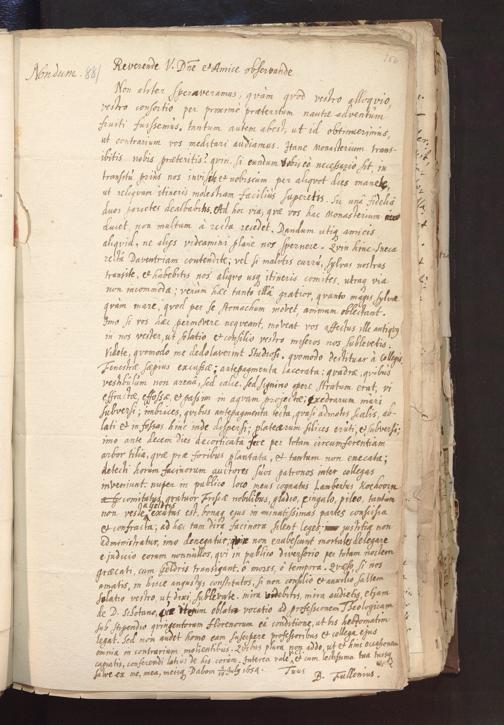 Nondum. 881
186
Reverende V. Dne et Amice observande
Non aliter speraveramus, quàm quod vestro alloquio,
vestro consortio per proximè praeteritum nautae adventum
fruiti fuissemus. tantum autem abest, ut id obtinuerimus,
ut contrarium vos meditari audiamus. Hanc Monasterium trans-
ibitis nobis praeteritis? quin si eundum vobis eò necessario sit, in
transitu prius nos invisite et nobiscum per aliquot dies manete,
ut reliquam itineris molestiam facilius superetis. Sic una fidelia
duos parietes dealbabitis. Ad hoc via, quae vos hac Monasterium
ducet, non multum à recta recidet. Dandum utiq amicis
aliquid, ne alijs videamini plane nos spernere. Quin hinc Sneca
rectà Daventriam contendite; vel si mavultis curru, sylvas nostras
transite, et habebitis nos aliquo usq itineris comites, utraq via
non incommoda; verùm haec tantò illâ gratior, quantò magis sylvae
quàm mare, quod per se stomachum movet, animum oblectant.
Imo si vos haec permovere nequeant, moveat vos affectus ille antiquus
in nos vester, ut solatio et consilio vestro miseros nos sublevetis.
Videte, quomodo me dedolaverint Studiosi, quomodo
Fenestrae saepius excussae; antepagmenta lacerata; quadrae, quibus
vestibulum non arena, sed calce, sed signino opere stratum erat, vi
effractae, effossae, et passim in aquam projectae; exedrarum muri
subversi; imbrices, quibus antepagmenta tecta, quasi admotis scalis, ab-
lati et in fossas hinc inde dispersi; platearum silices eruti, et subversi;
imo ante decem dies decorticata fere per totam circumferentiam
arbor tilia, quae prae foribus plantata, et tantum non enecata;
detecti horum facinorum auctores suos patronos inter collegas
inveniunt. nuper in publico loco meus cognatus Lambertus
comitatus, Frisiae nobilibus, gladio, cingulo, pileo, tantum
non veste exutus est, bonaq ejus in minutissimas partes conscissa
et confracta; ad haec tam dira facinora silent leges; justitia non
administratur, imo denegatur, non erubescunt mortales delegare
è judicio eorum nonnullos, qui in publico diversorio per totam noctem
graecati, cum sceleris transigant. ô mores, ô tempora. Quaeso, si nos
amatis, in hisce angustijs constitutos, si non consilio et auxilio saltem
solatio vestro, ut dixi, sublevate. mira videbitis, mira audietis, etiam
de D. Schotano, iterum oblata vocatio ad professionem Theologicam
sub stipendio quingentorum florenorum eâ conditione, ut bis hebdomatim
legat. Sed non audet homo eam suscipere professoribus et collega ejus
omnia in contrarium molientibus. Quibus plura non addo, ut et hinc occasionem
capiatis, conferendi latius de his coram. Interea vale, et cum lectissima tua tuisq
salve ex me, mea, meisq. Dabam July 1654.
Tuus
B. Fullenius.